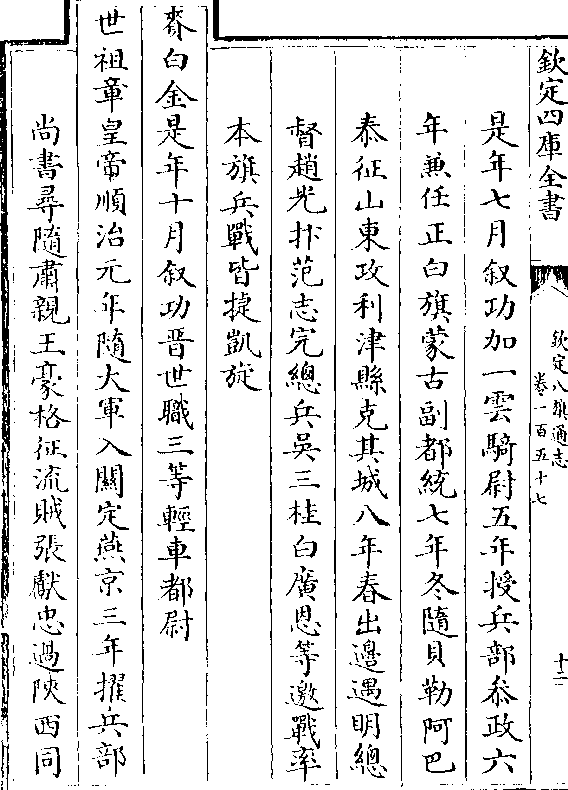 欽定四庫全書
欽定八旗通志
卷一百五十七
十二
是年七月叙功加一雲騎尉五年授兵部叅政六
年兼任正白旗蒙古副都統七年冬隨貝勒阿巴
泰征山東攻利津縣克其城八年春出邊遇明總
督趙光抃范志完總兵吳三桂白廣恩等邀戰率
本旗兵戰皆捷凱旋
賚白金是年十月叙功晋世職三等輕車都尉
世祖章皇帝順治元年隨大軍入關定燕京三年擢兵部
尚書尋隨肅親王豪格征流賊張獻忠過陜西同